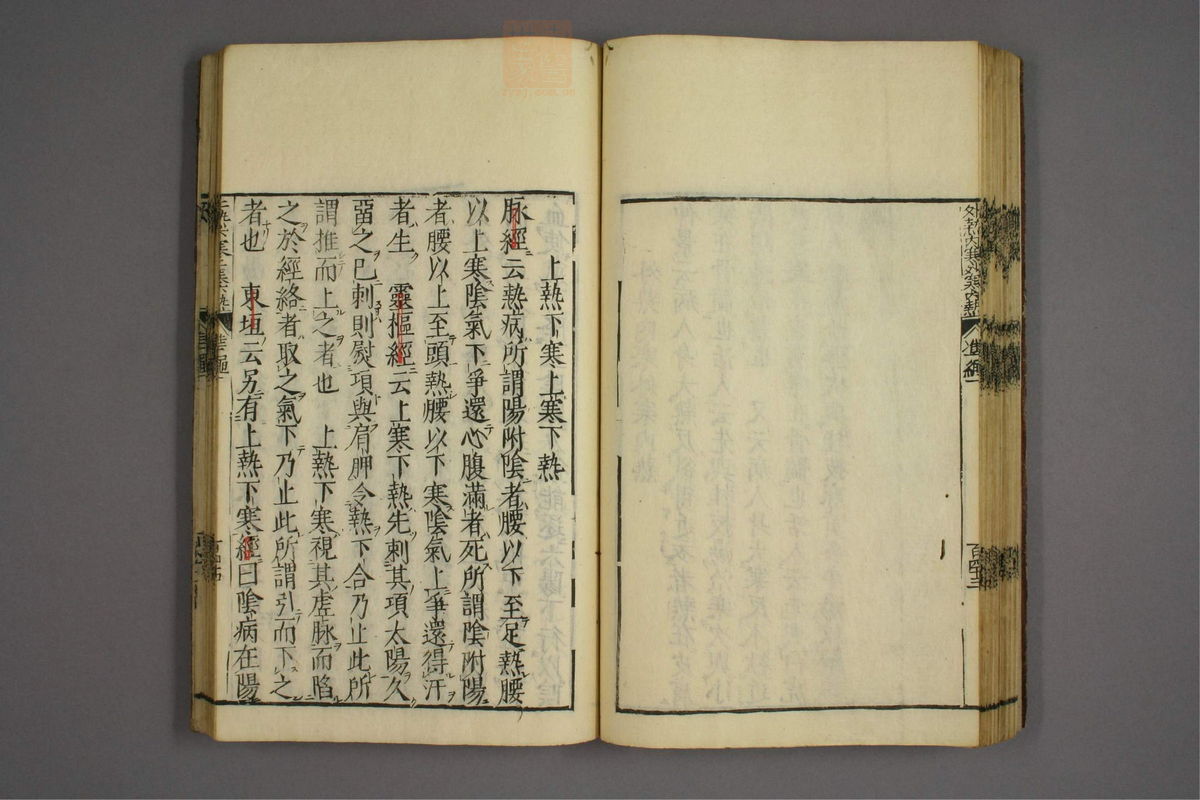 外熱內寒外寒內熱
準繩一
百四十三
上熱下寒上寒下熱
脉經云熱病所謂陽附陰者腰以下至足熱腰
以上寒陰氣下爭還心腹滿者死所謂陰附陽
者腰以上至頭熱腰以下寒陰氣上爭還得汗
者生　靈樞經云上寒下熱先刺其項太陽久
畱之已刺則熨項與肩胛令熱下合乃止此所
謂推而上之者也　上熱下寒視其虛脉而陷
之於經絡者取之氣下乃止此所謂引而下之
者也　東垣云另有上熱下寒經曰陰病在陽